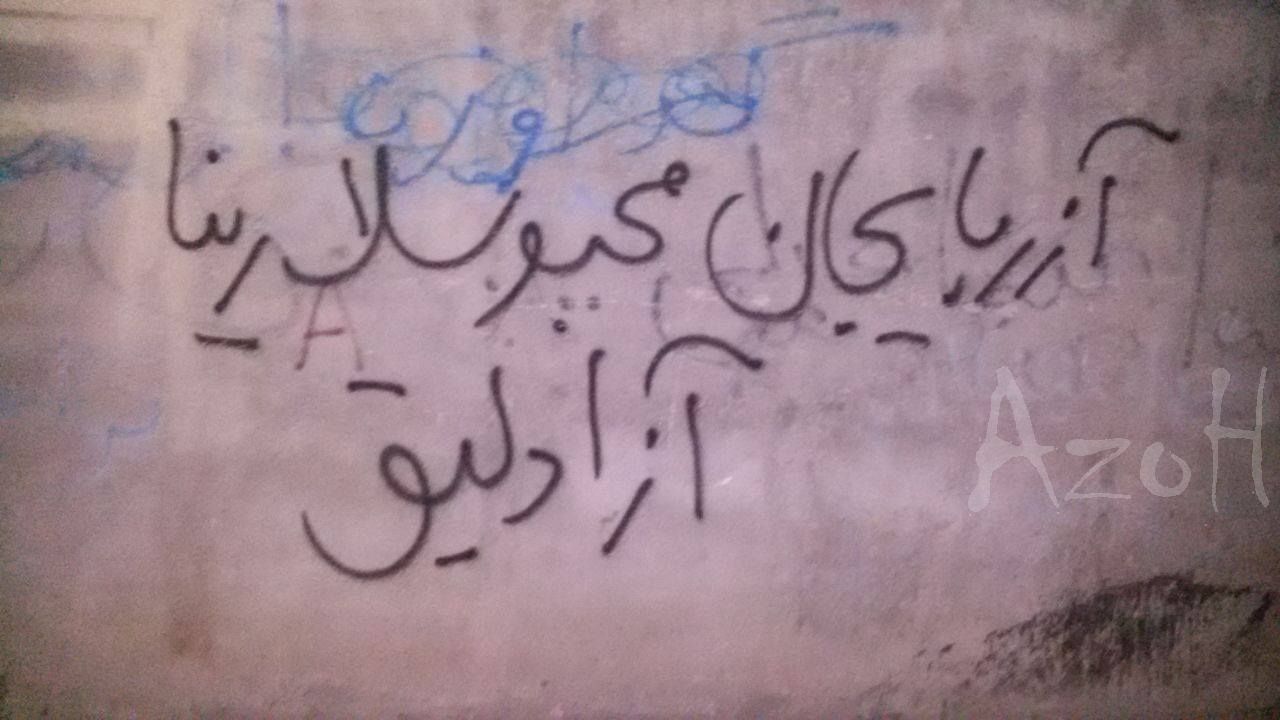 آزربایجان محبوسلارینا
آزادلیق
A
AzoH